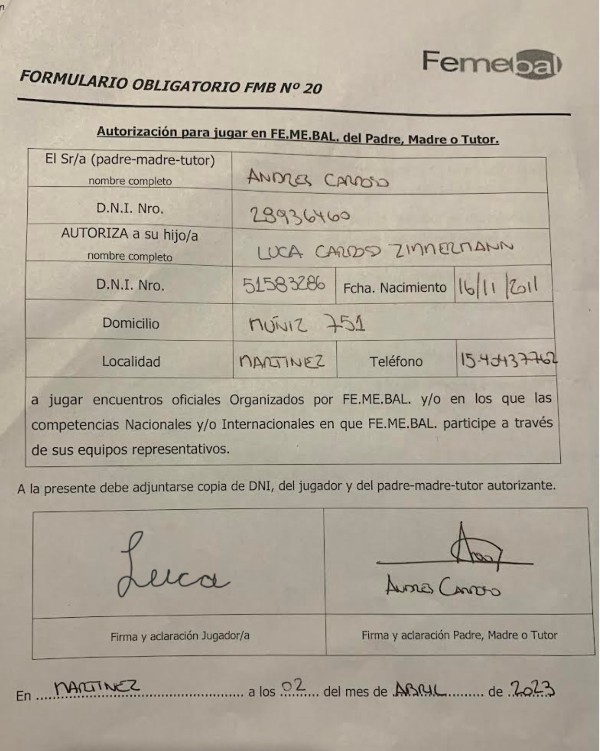 Femebal
FORMULARIO OBLIGATORIO FMB Nº 20
Autorización para jugar en FE.ME.BAL. del Padre, Madre o Tutor.
El Sr/a (padre-madre-tutor)
nombre completo
ANDRES CARDOSO
D.N.I. Nro.
28936460
AUTORIZA a su hijo/a
nombre completo
LUCA CARDOSO ZIMMERMANN
D.N.I. Nro. 51583286 Fcha. Nacimiento 16/11/2011
Domicilio MUÑIZ 751
Localidad MARTINEZ Teléfono
a jugar encuentros oficiales Organizados por FE.ME.BAL. y/o en los que las
competencias Nacionales y/o Internacionales en que FE.ME.BAL. participe a través
de sus equipos representativos.
A la presente debe adjuntarse copia de DNI, del jugador y del padre-madre-tutor autorizante.
Luca
ANDRES CARDOSO
Firma y aclaración Jugador/a Firma y aclaración Padre, Madre o Tutor
En MARTINEZ a los 02 del mes de ABRIL de 2023